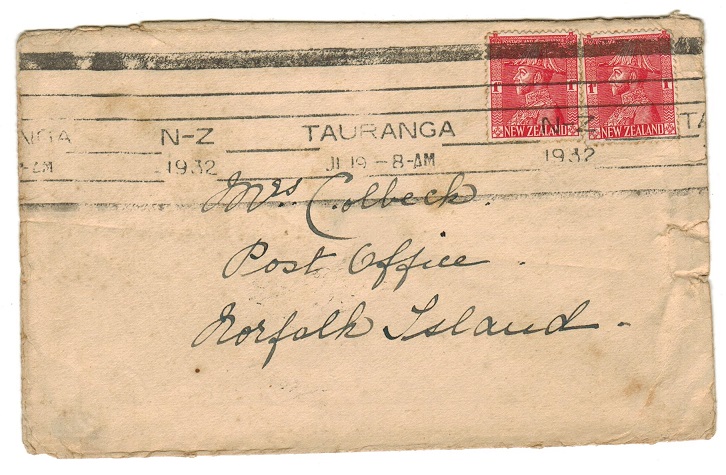 1 1 1 1
NEW ZEALAND NEW ZEALAND
N-Z TAURANGA N-Z TA
1932 8-AM 1932
Mrs Colbeck.
Post Office.
Norfolk Island.